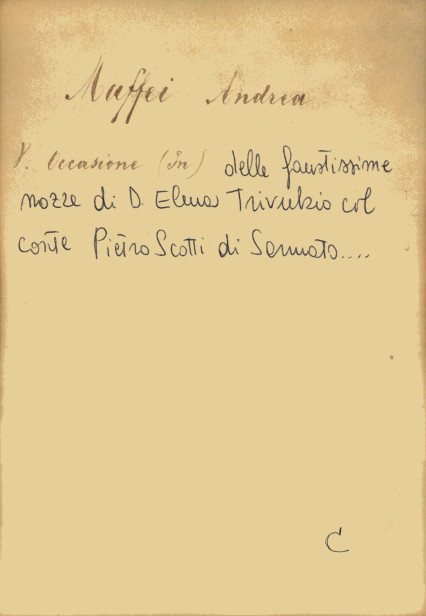 Maffei Andrea
V. Occasione (In) delle faustissime
nozze di D. Elena Trivulzio col
conte Pietro Scotti di Sarmato....
C